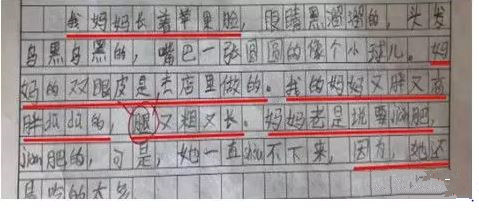 我妈妈长着苹果脸，眼睛黑溜溜的，头发
乌黑乌黑的，嘴巴一张圆圆的像个小球儿。妈
妈的双眼皮是去店里做的。我的妈妈又胖又高
胖的，腿又粗又长。妈妈老是说要jian肥，
jian肥的，可是，她一直jian不下来，因为，她还
是吃的太多